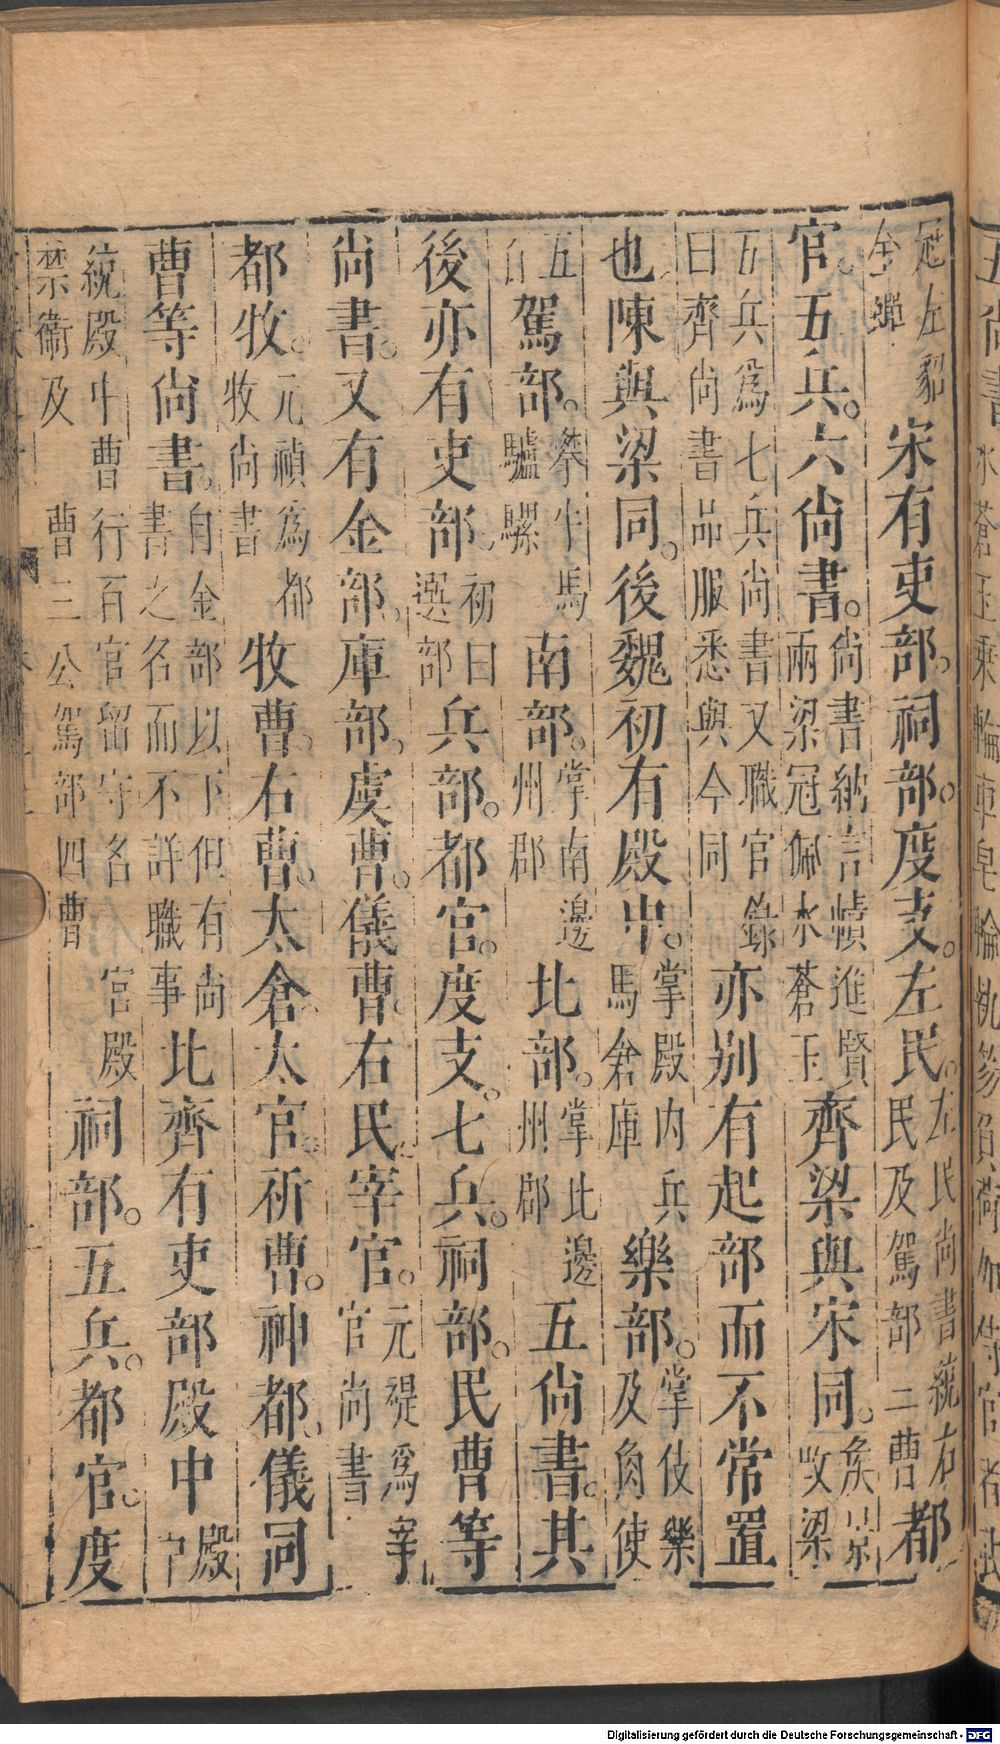 五尚書
水蒼玉乘軺車皂輪執笏負荷加侍官者武
冠左貂
金蟬
宋有吏部。祠部。度支。左民。
左民尚書統右
民及駕部二曹
都
官。五兵。六尚書。
尚書納言幘進賢
兩梁冠佩水蒼玉
齊梁與宋同。
侯景
改梁
五兵爲七兵尚書又職官錄
曰齊尚書品服悉與今同
亦別有起部而不常置
也陳與梁同。後魏初有殿中。
掌殿内兵
馬倉庫
樂部。
掌伎樂
及角使
五
百
駕部。
掌牛馬
驢騾
南部。
掌南邊
州郡
北部。
掌北邊
州郡
五尚書。其
後亦有吏部。
初曰
選部
兵部。都官。度支。七兵。祠部。民曹等
尚書。又有金部。庫部。虞曹。儀曹。右民。宰官。
元禔爲宰
官尚書
都牧。
元禎爲都
牧尚書
牧曹。右曹。太倉。太官。祈曹。神都。儀同
曹等尚書。
自金部以下但有尚
書之名而不詳職事
北齊有吏部殿中
殿
中
統殿中曹行百官留守名宮殿
禁衛及曹三公駕部四曹
祠部。五兵。都官。度
Digitalisierung gefördert durch die Deutsche Forschungsgemeinschaft - DFG